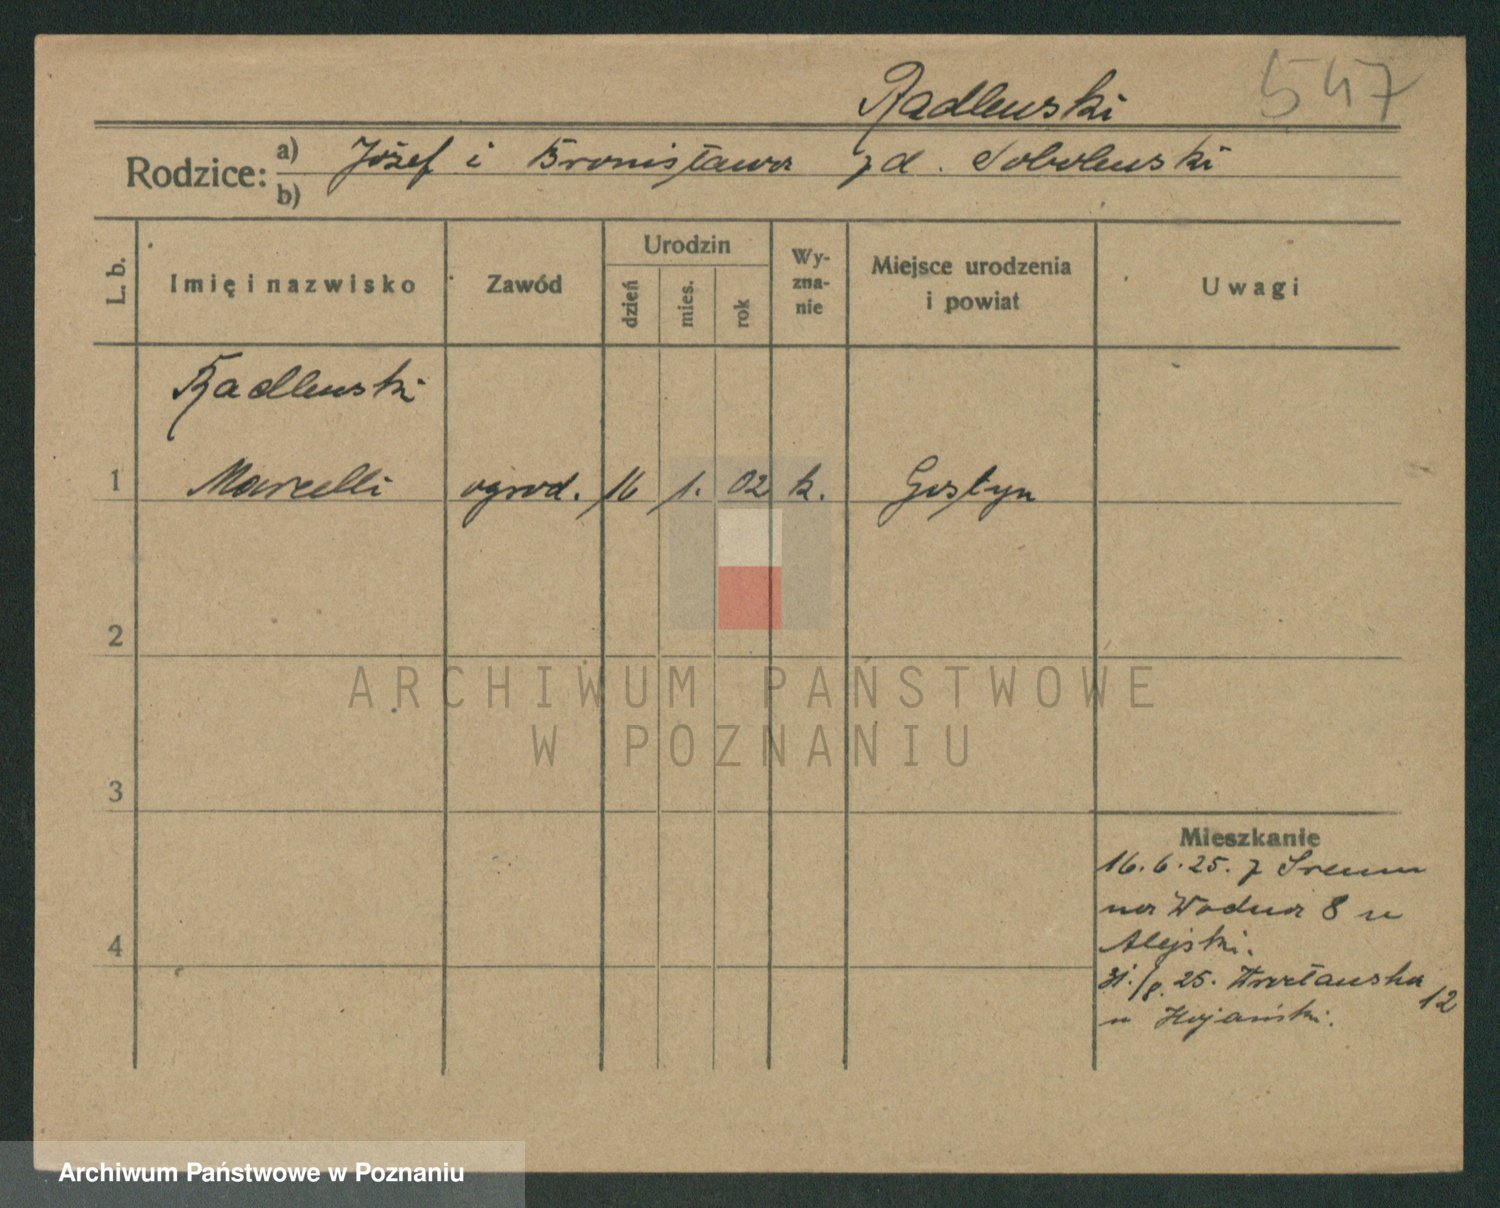 547
Radlewski
Rodzice: a) Józef i Bronisława zd. Sobolewski
b)
L. b. Imię i nazwisko Zawód Urodzin dzień mies. rok Wyzna-nie Miejsce urodzenia i powiat Uwagi
Radlewski
1 Marcelli ogrod. 16 1. 02 k. Gostyn
2
ARCHIWUM PAŃSTWOWE
W POZNANIU
3
Mieszkanie
16.6.25. z Srem
na Wodna 8 u
4 Alejski.
31./8. 25. 12
u
Archiwum Państwowe w Poznaniu